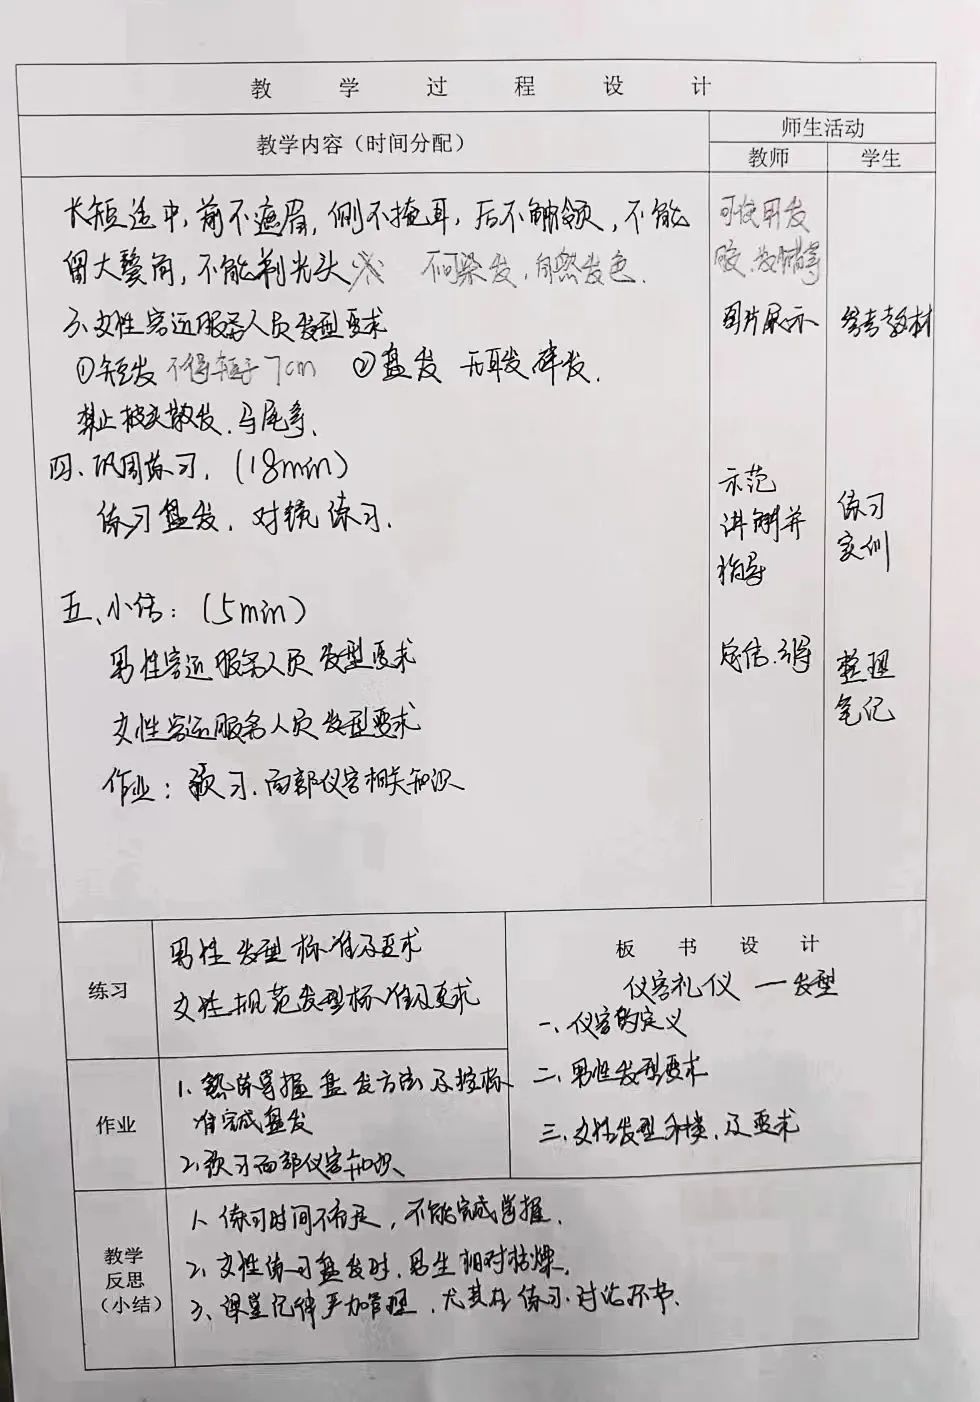 教学过程设计
教学内容（时间分配）
师生活动
教师
学生
长短适中，前不遮眉，侧不掩耳，后不触领，不能
留大鬓角，不能剃光头 不可染发，自然发色.
可试用发
胶、发腊等
3、女性客运服务人员发型要求
图片展示
参考教材
①短发 不得短于7cm ②盘发 无耳发碎发.
禁止披头散发、马尾等.
四、巩固练习. (18min)
练习盘发、对镜练习.
示范
讲解并
指导
练习
实训
五、小结：(5min)
男性客运服务人员发型要求
女性客运服务人员发型要求
作业：预习、面部仪容相关知识
总结、引导
整理
笔记
练习
男性发型标准及要求
女性规范发型标准及要求
作业
1. 熟练掌握盘发方法及按标
准完成盘发
2、预习面部仪容知识
板书设计
仪容礼仪 — 发型
一、仪容的定义
二、男性发型要求
三、女性发型种类、及要求
教学
反思
（小结）
1、练习时间不充足，不能完成掌握.
2、女性练习盘发时、男生相对枯燥.
3、课堂纪律严加管理、尤其在练习、讨论环节.